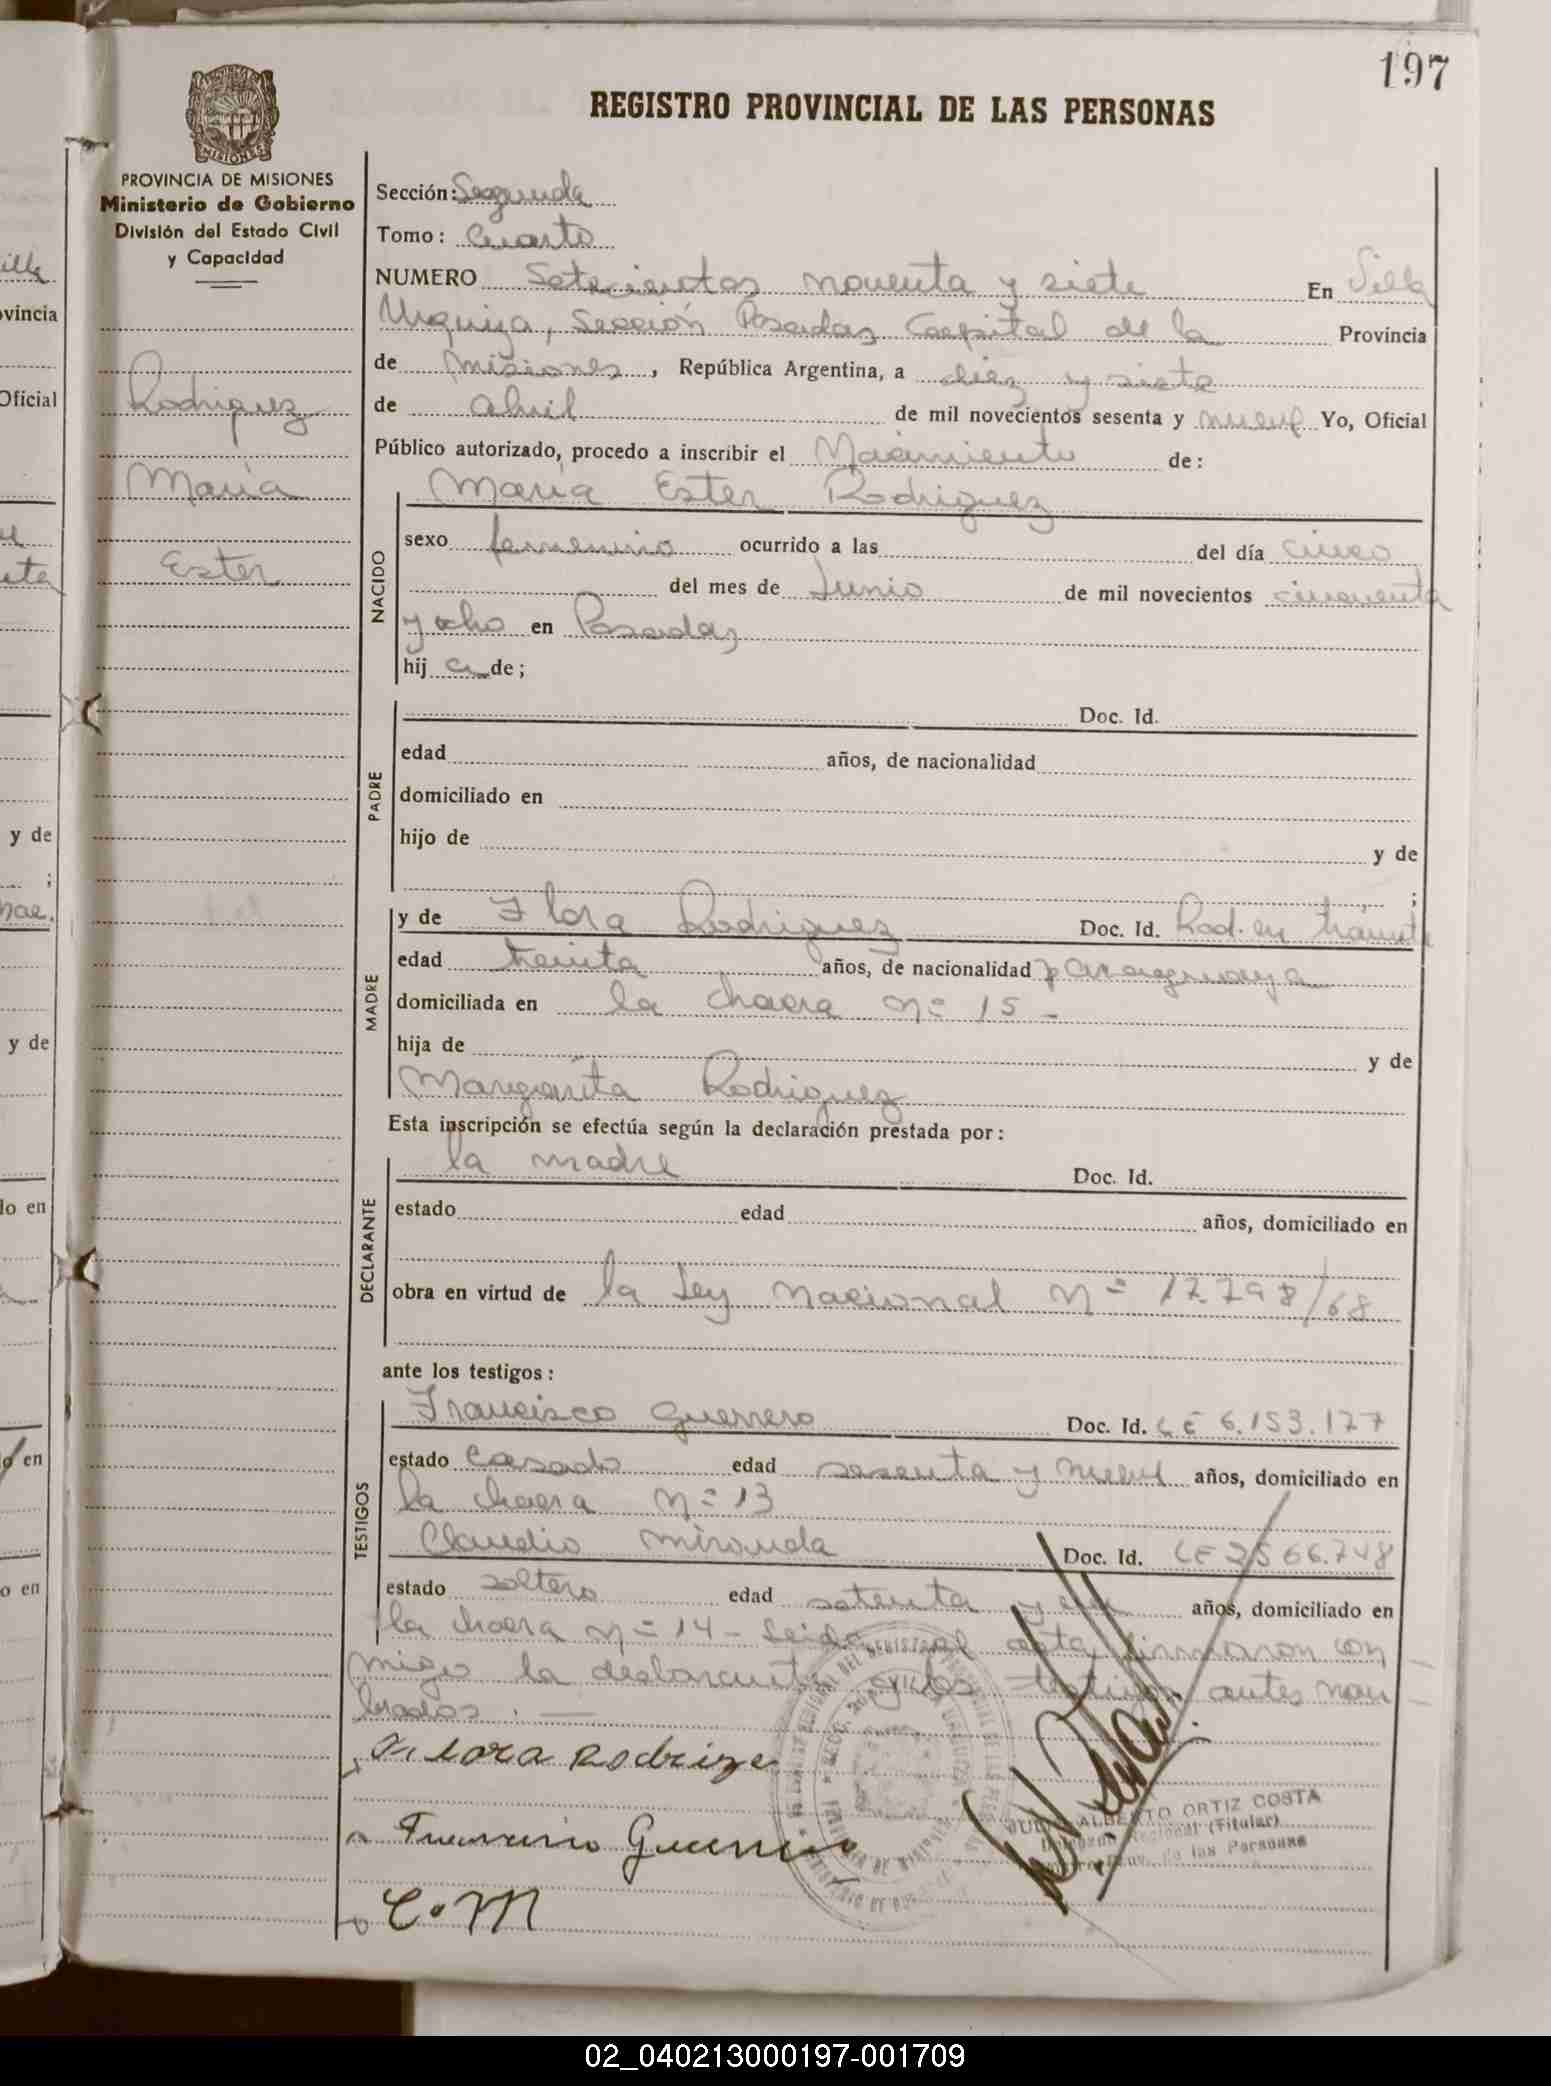 197
REGISTRO PROVINCIAL DE LAS PERSONAS
MISIONES
PROVINCIA DE MISIONES
Ministerio de Gobierno
División del Estado Civil
y Capacidad
Rodriguez
María
Ester
Sección: Segunda
Tomo: Cuarto
NUMERO Setecientos noventa y siete En Villa
Urquiza, Sección Posadas Capital de la Provincia
de Misiones, República Argentina, a diez y siete
de abril de mil novecientos sesenta y nueve Yo, Oficial
Público autorizado, procedo a inscribir el Nacimiento de:
María Ester Rodriguez
NACIDO
sexo femenino ocurrido a las del día cinco
del mes de Junio de mil novecientos cincuenta
y ocho en Posadas
hij a de;
PADRE
Doc. Id.
edad años, de nacionalidad
domiciliado en
hijo de y de
;
MADRE
y de Flora Rodriguez Doc. Id. Rad. en trámite
edad treinta años, de nacionalidad paraguaya
domiciliada en la chacra nº 15 -
hija de y de
Margarita Rodriguez
Esta inscripción se efectúa según la declaración prestada por:
DECLARANTE
la madre Doc. Id.
estado edad años, domiciliado en
obra en virtud de la Ley nacional nº 17.798/68
ante los testigos:
TESTIGOS
Francisco Guerrero Doc. Id. LE 6.153.177
estado Casado edad sesenta y nueve años, domiciliado en
la chacra nº 13
Claudio Miranda Doc. Id. LE 2566.748
estado soltero edad setenta y años, domiciliado en
la chacra nº 14 - Leida el acta firmaron con
migo la declarante y los testigos antes nom
brados. —
Flora Rodrige
Francisco Guerrero
C. M
JULIO ALBERTO ORTIZ COSTA
Delegado Regional (Titular)
Registro Prov. de las Personas
illa
ovincia
Oficial
y de
;
y de
do en
o en
o en
02_040213000197-001709